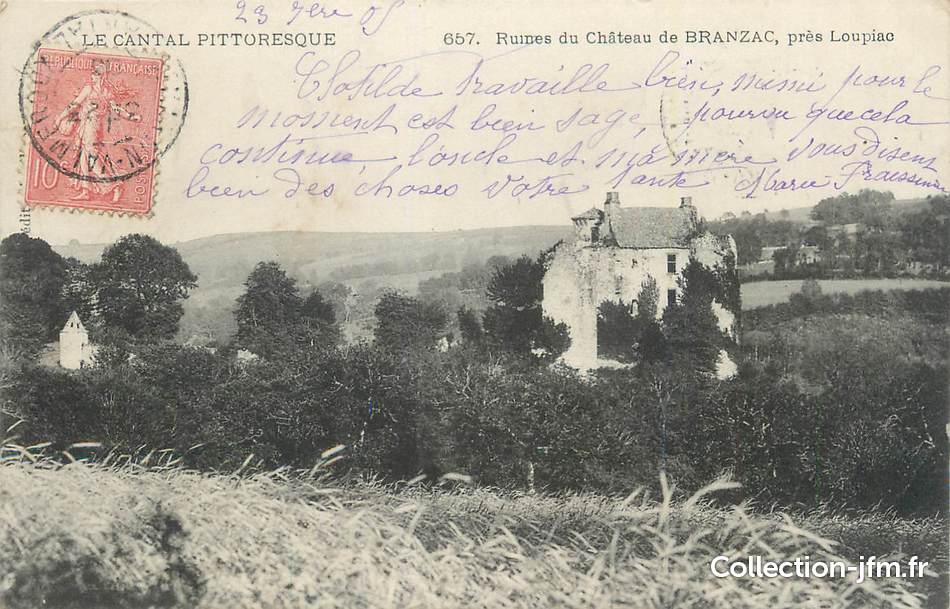 23 7bre 05
LE CANTAL PITTORESQUE
657. Ruines du Château de BRANZAC, près Loupiac
REPUBLIQUE FRANÇAISE
10
POSTES
Clotilde travaille bien, mimi pour le
moment est bien sage, pourvu que cela
continue l'oncle et ma mère vous disent
bien des choses votre tante Marie
Edit
Collection-jfm.fr